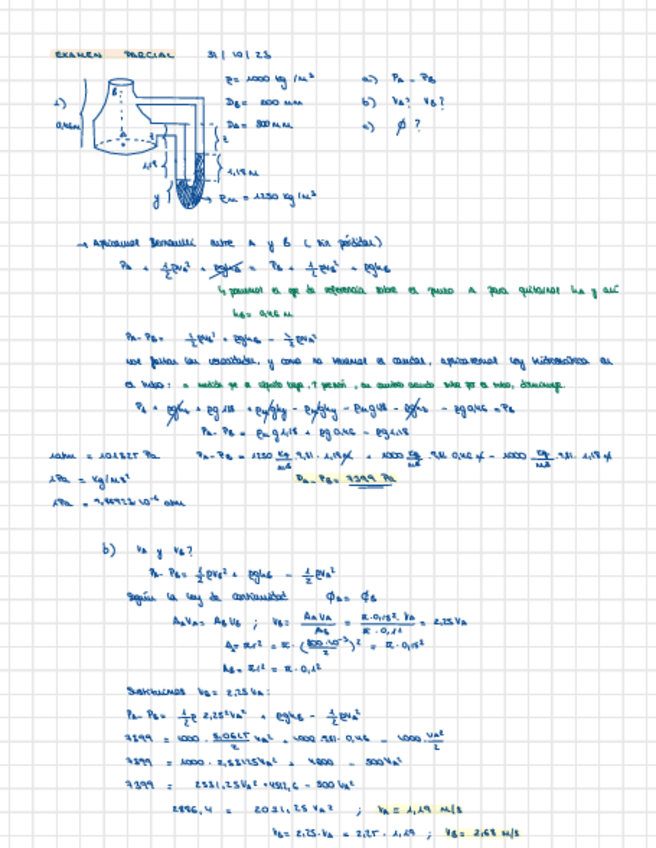 EXAMEN PARCIAL 31/10/23
ρ= 1000 kg/m³ a) PA - PB
1) DB= 200 mm b) VA? VB?
0,46m DA= 300mm c) ϕ?
B
A
z z
1,18 1,18m
y ρm = 1250 kg/m³
→ Aplicamos Bernoulli entre A y B (sin pérdidas)
PA + ½ρVA² + ρghA = PB + ½ρVB² + ρghB
↳ ponemos el eje de referencia sobre el punto A para quitarnos hA y así
hB = 0,46 m
PA- PB= ½ρVB² + ρghB - ½ρVA²
nos faltan las velocidades, y como no tenemos el caudal, aplicamos ley hidrostática en
el tubo:
PA - PB = ρmg1,18 + ρg0,46 - ρg1,18
1atm = 101325 Pa PA-PB = 1250 kg/m³ 9,81 1,18 + 1000 kg/m³ 9,81 0,46 - 1000 kg/m³ 9,81 1,18
1Pa = kg/ms² PA-PB= 7399 Pa
b) VA y VB?
PA- PB= ½ρVB² + ρghB - ½ρVA²
Según la ley de continuidad ϕA= ϕB
AAVA= ABVB ; VB= AAVA/AB = π·0,15²·VA/π·0,1² = 2,25VA
AA=πr² = π·(300·10⁻³/2)² = π·0,15²
AB= πr² = π·0,1²
Sustituimos VB= 2,25VA:
PA- PB= ½ρ 2,25²VA² + ρghB - ½ρVA²
7399 = 1000· 5,0625/2 VA² + 1000·9,81·0,46 - 1000·VA²/2
7399 = 1000· 2,53125VA² + 4600 - 500VA²
7399 = 2531,25VA² +4512,6 - 500VA²
2886,4 = 2031,25 VA² ; VA= 1,19 m/s
VB= 2,25·VA = 2,25·1,19 ; VB= 2,68 m/s